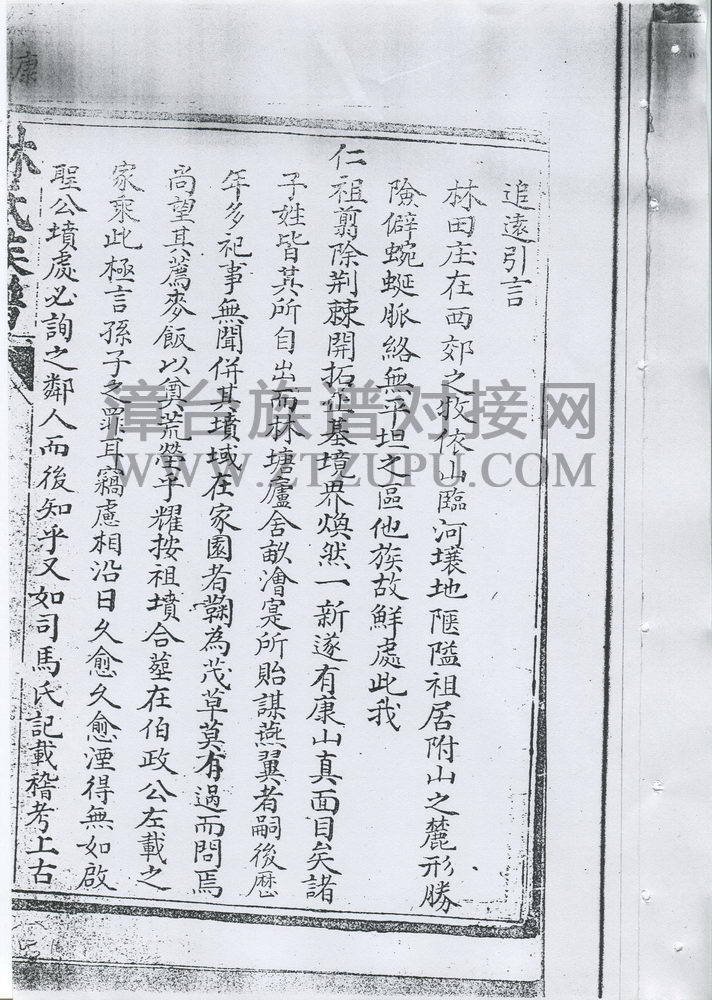 追遠引言
林田庄在西郊之牧依山臨河壤地陿隘祖居附山之麓形勝
險僻蜿蜒脈絡無平坦之區他族故鮮處此我
仁祖翦除荆棘開拓丕基境界煥然一新遂有康山真面目矣諸
子姓皆其所自出而林塘廬舍畝澮寔所貽謀燕翼者嗣後歷
年多祀事無聞併其墳域在家園者鞠為茂草莫有過而問焉
尚望其薦麥飯以奠荒塋乎耀按祖墳合塟在伯政公左載之
家乘此極言孫子之罪耳竊慮相沿日久愈久愈湮得無如啟
聖公墳處必詢之鄰人而後知乎又如司馬氏記載稽考上古
林氏族譜
康
漳台族谱对接网
WWW.ZTZUPU.COM